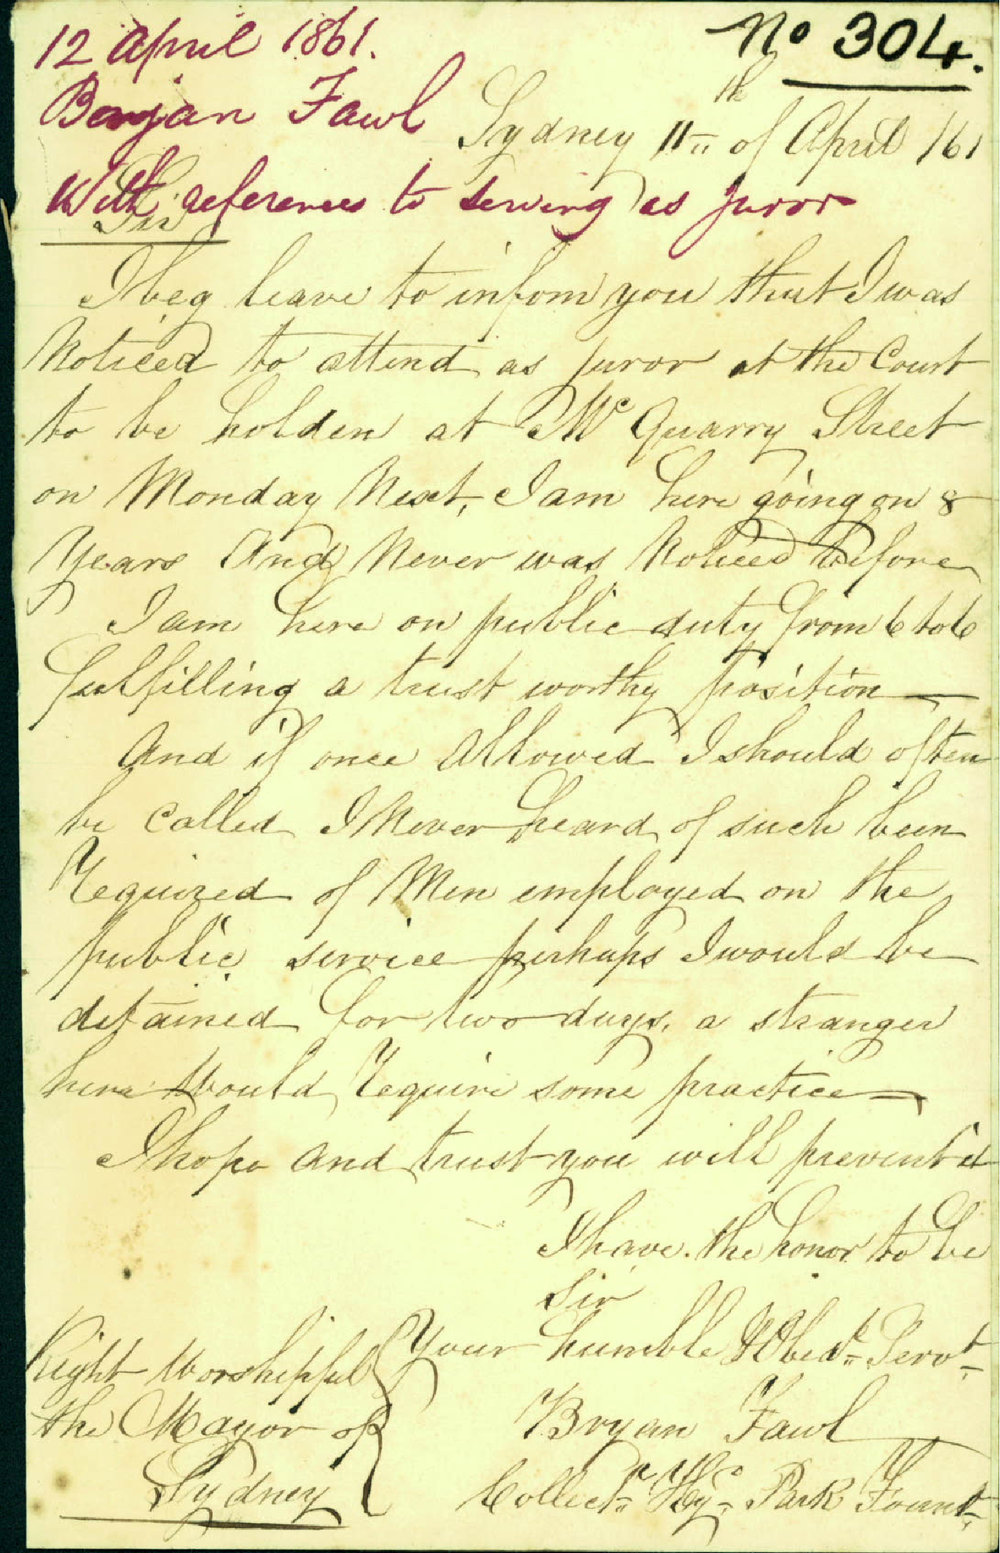 12 April 1861.
No 304.
Bryan Fawl
Sydney 11th of April /61
With references to serving as juror
Sir
I beg leave to infom you that I was
Noticed to attend as juror at the Court
to be holden at McQuarry Street
on Monday Next, I am here going on 8
Years And Never was Noticed before
I am here on public duty from 6 to 6
fulfilling a trust worthy position —
And if once Allowed I should often
be Called I Never heard of such been
Required of Men employed on the
public service perhaps I would be
detained for two days, a stranger
here Would Require some practice —
I hope and trust you will prevent it
I have the honor to be
Sir
Your humble & Obedt. Servt.
Right Worshipful
the Mayor of
Sydney
Bryan Fawl
Collectr. Hy. Park Fount.